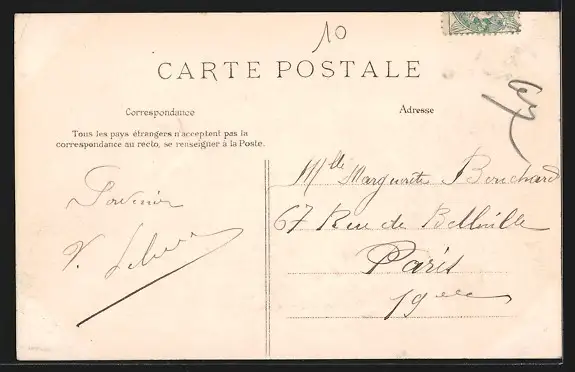 10
CARTE POSTALE
Correspondance
Adresse
Tous les pays étrangers n'acceptent pas la
correspondance au recto, se renseigner à la Poste.
Mlle Marguerite Bouchard
67 Rue de Belleville
Paris
19eme
Souvenir
V.